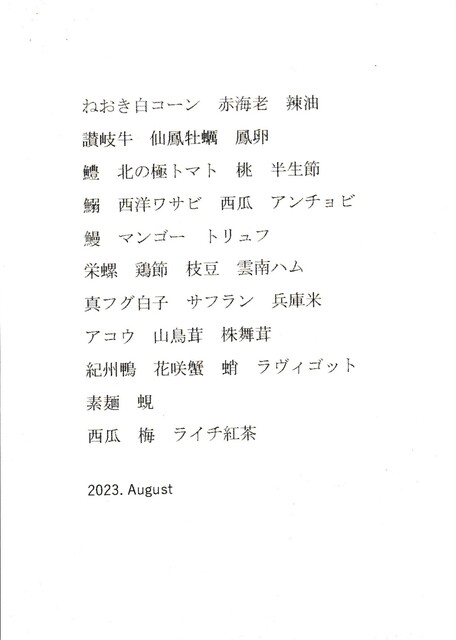 ねおき白コーン　赤海老　辣油
讃岐牛　仙鳳牡蠣　鳳卵
鱧　北の極トマト　桃　半生節
鰯　西洋ワサビ　西瓜　アンチョビ
鰻　マンゴー　トリュフ
栄螺　鶏節　枝豆　雲南ハム
真フグ白子　サフラン　兵庫米
アコウ　山鳥茸　株舞茸
紀州鴨　花咲蟹　蛸　ラヴィゴット
素麺　蜆
西瓜　梅　ライチ紅茶
2023. August